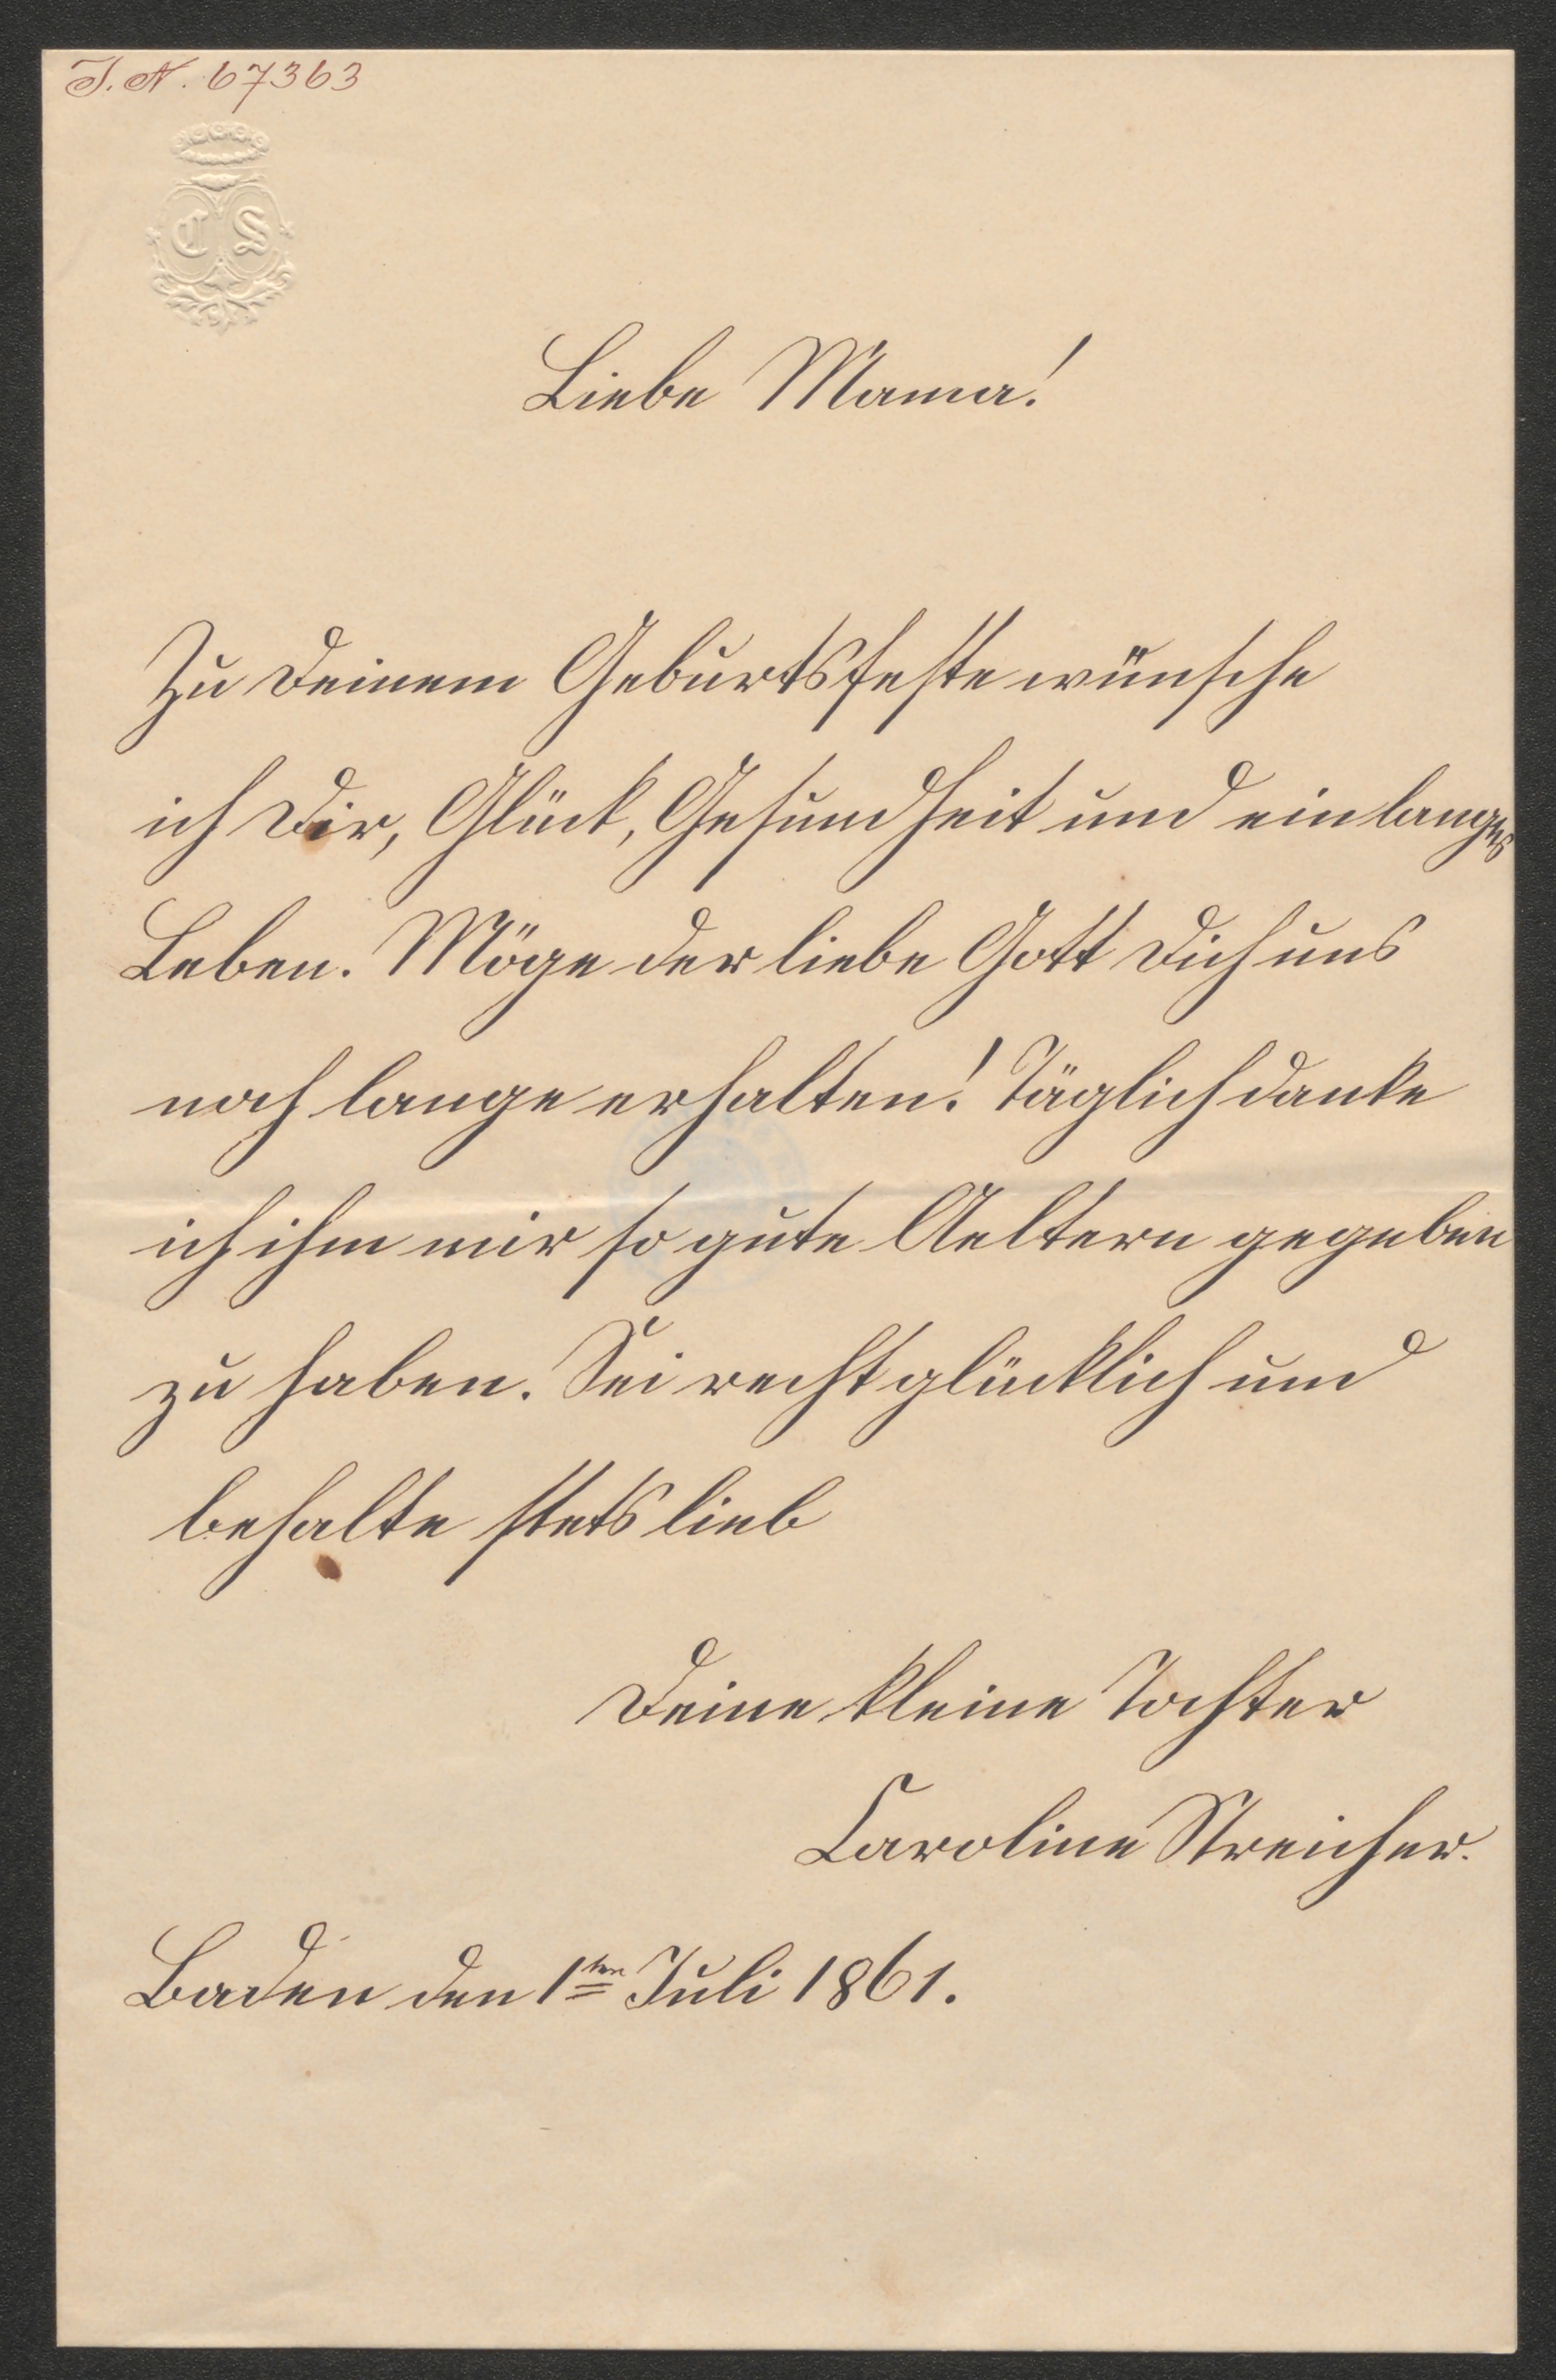 I. N. 67363
C S
Liebe Mama!
Zu Deinem Geburtsfeste wünsche
ich Dir, Glück, Gesundheit und ein langes
Leben. Möge der liebe Gott Dich uns
noch lange erhalten! Täglich danke
ich ihm mir so gute Aeltern gegeben
zu haben. Sei recht glücklich und
behalte stets lieb
Deine kleine Tochter
Caroline Streicher.
Baden den 1ten Juli 1861.